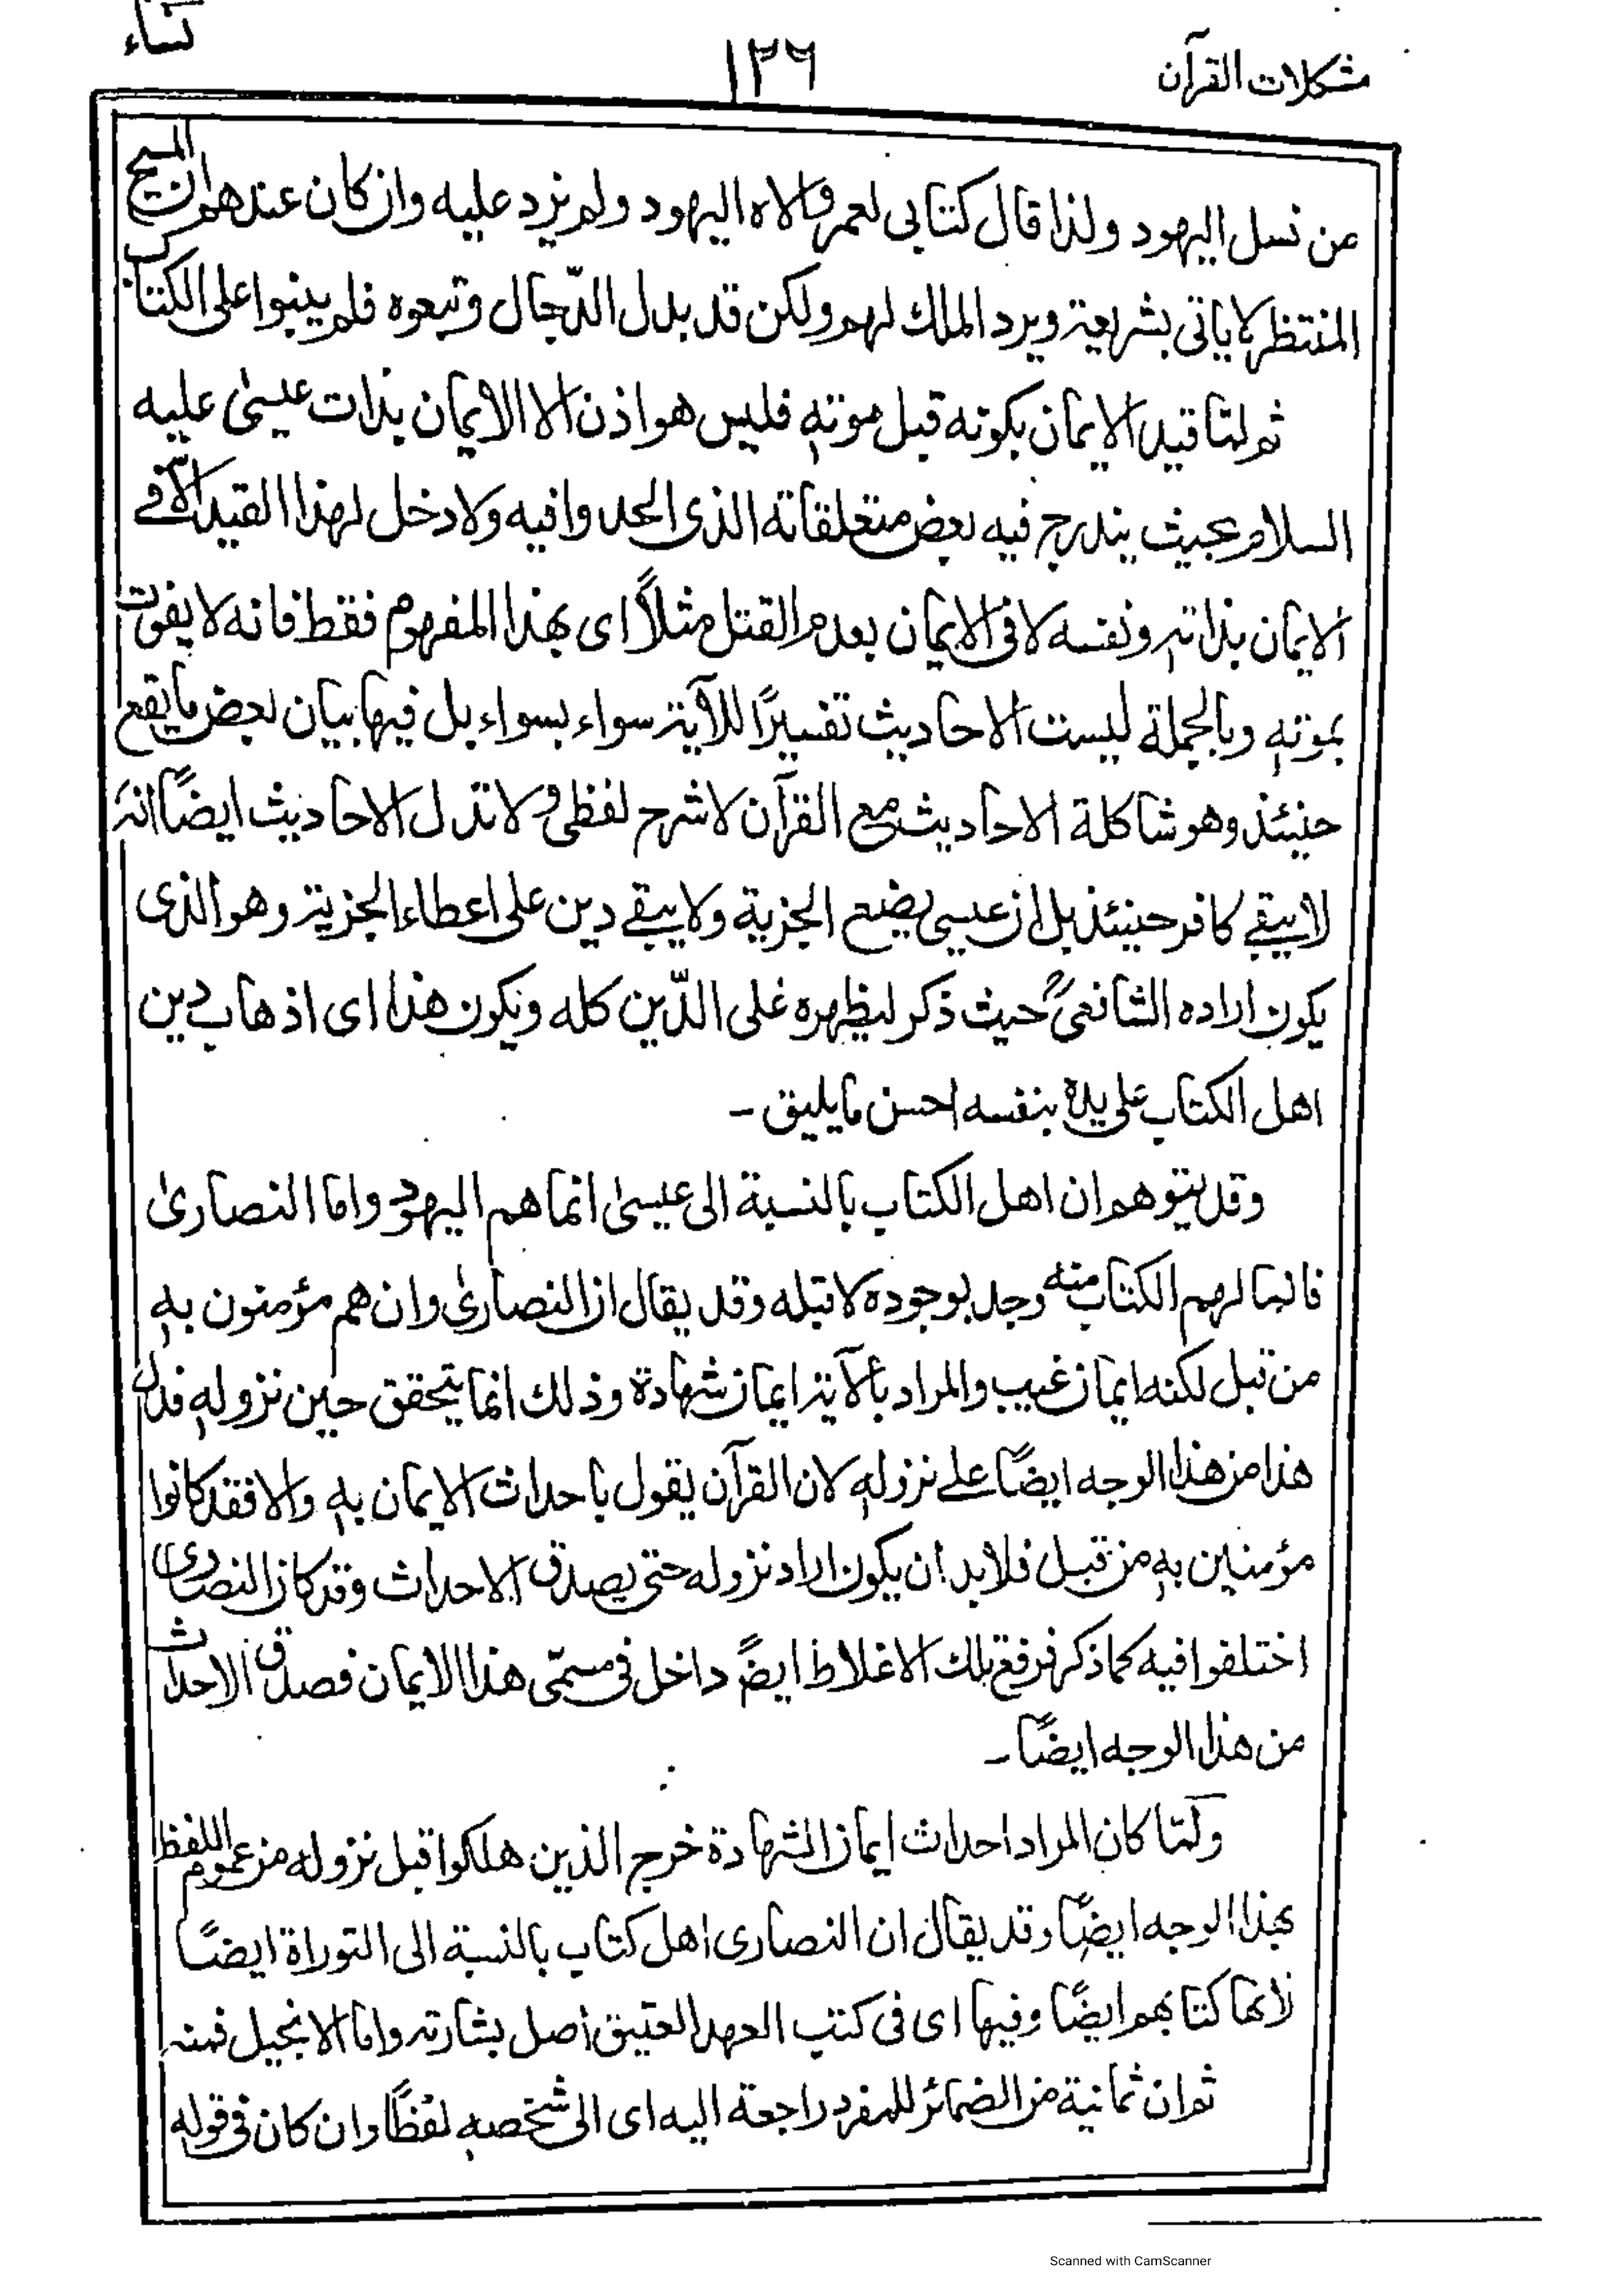 مشكلات القرآن
١٢٦
نساء
من نسل اليهود ولذا قال كتابى لعمر والاه اليهود ولم يزد عليه وان كان عندهم ان المسيح
المنتظر لا ياتى بشريعة ويرد الملك لهم ولكن قد بدل الدّجال وتبعوه فلم يبنوا على الكتاب
ثم لمّا قيد الايمان بكونه قبل موتهٖ فليس هو اذن الا الايمان بذات عيسىٰ عليه
السلام بحيث يندرج فيه بعض متعلقاته الذى الحدوا فيه ولا دخل لهذا القيد الا فے
الايمان بذاتهٖ ونفسه لا فى الايمان بعدم القتل مثلاً اى بهذا المفهوم فقط فانه لا يفوت
بموتهٖ وبالجملة ليست الاحاديث تفسيرًا للآية سواء بسواء بل فيها بيان لبعض ما يقع
حينئذ وهو شاكلة الاحاديث مع القرآن لا شرح لفظى ولا تدل الاحاديث ايضًا انه
لا يبقے كافر حينئذ بل ان عيسى يضع الجزية ولا يبقے دين على اعطاء الجزية وهو الذى
يكون اراده الشافعىؒ حيث ذكر ليظهره على الدّين كله ويكون هذا اى اذهاب دين
اهل الكتاب على يده بنفسه احسن ما يليق ـ
وقد يتوهم ان اهل الكتاب بالنسبة الى عيسىٰ انما هم اليهود واما النصارىٰ
فانما لهم الكتاب منه وجد بوجوده لا قبله وقد يقال ان النصارىٰ وان هم مؤمنون بهٖ
من قبل لكنه ايمان غيب والمراد بالآية ايمان شهادة وذلك انما يتحقق حين نزولهٖ فدل
هذا من هذا الوجه ايضًا علے نزولهٖ لان القرآن يقول باحداث الايمان بهٖ والا فقد كانوا
مؤمنين بهٖ من قبل فلا بد ان يكون اراد نزوله حتى يصدق الاحداث وقد كان النصارى
اختلفوا فيه كما ذكر فرفع تلك الاغلاط ايضً داخل فى مسمّى هذا الايمان فصدق الاحداث
من هذا الوجه ايضًا ـ
ولمّا كان المراد احداث ايمان الشهادة خرج الذين هلكوا قبل نزوله من عموم اللفظ
بهذا الوجه ايضًا وقد يقال ان النصارى اهل كتاب بالنسبة الى التوراة ايضًا
لانها كتابهم ايضًا وفيها اى فى كتب العهد العتيق اصل بشارته واما الانجيل فمنه
ثم ان ثمانية من الضمائر للمفرد راجعة اليه اى الى شخصهٖ لفظًا وان كان فى قولهٖ
Scanned with CamScanner